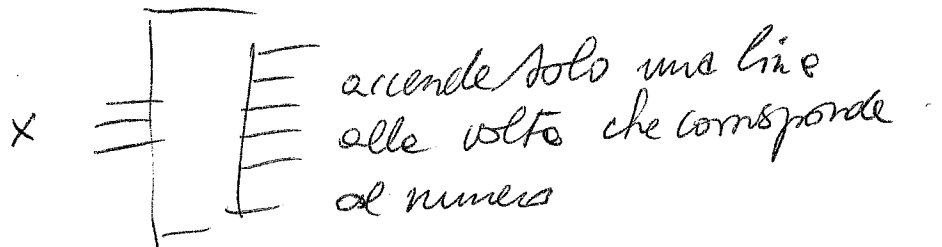 accende solo una line
alla volta che corrisponde
X
al numero